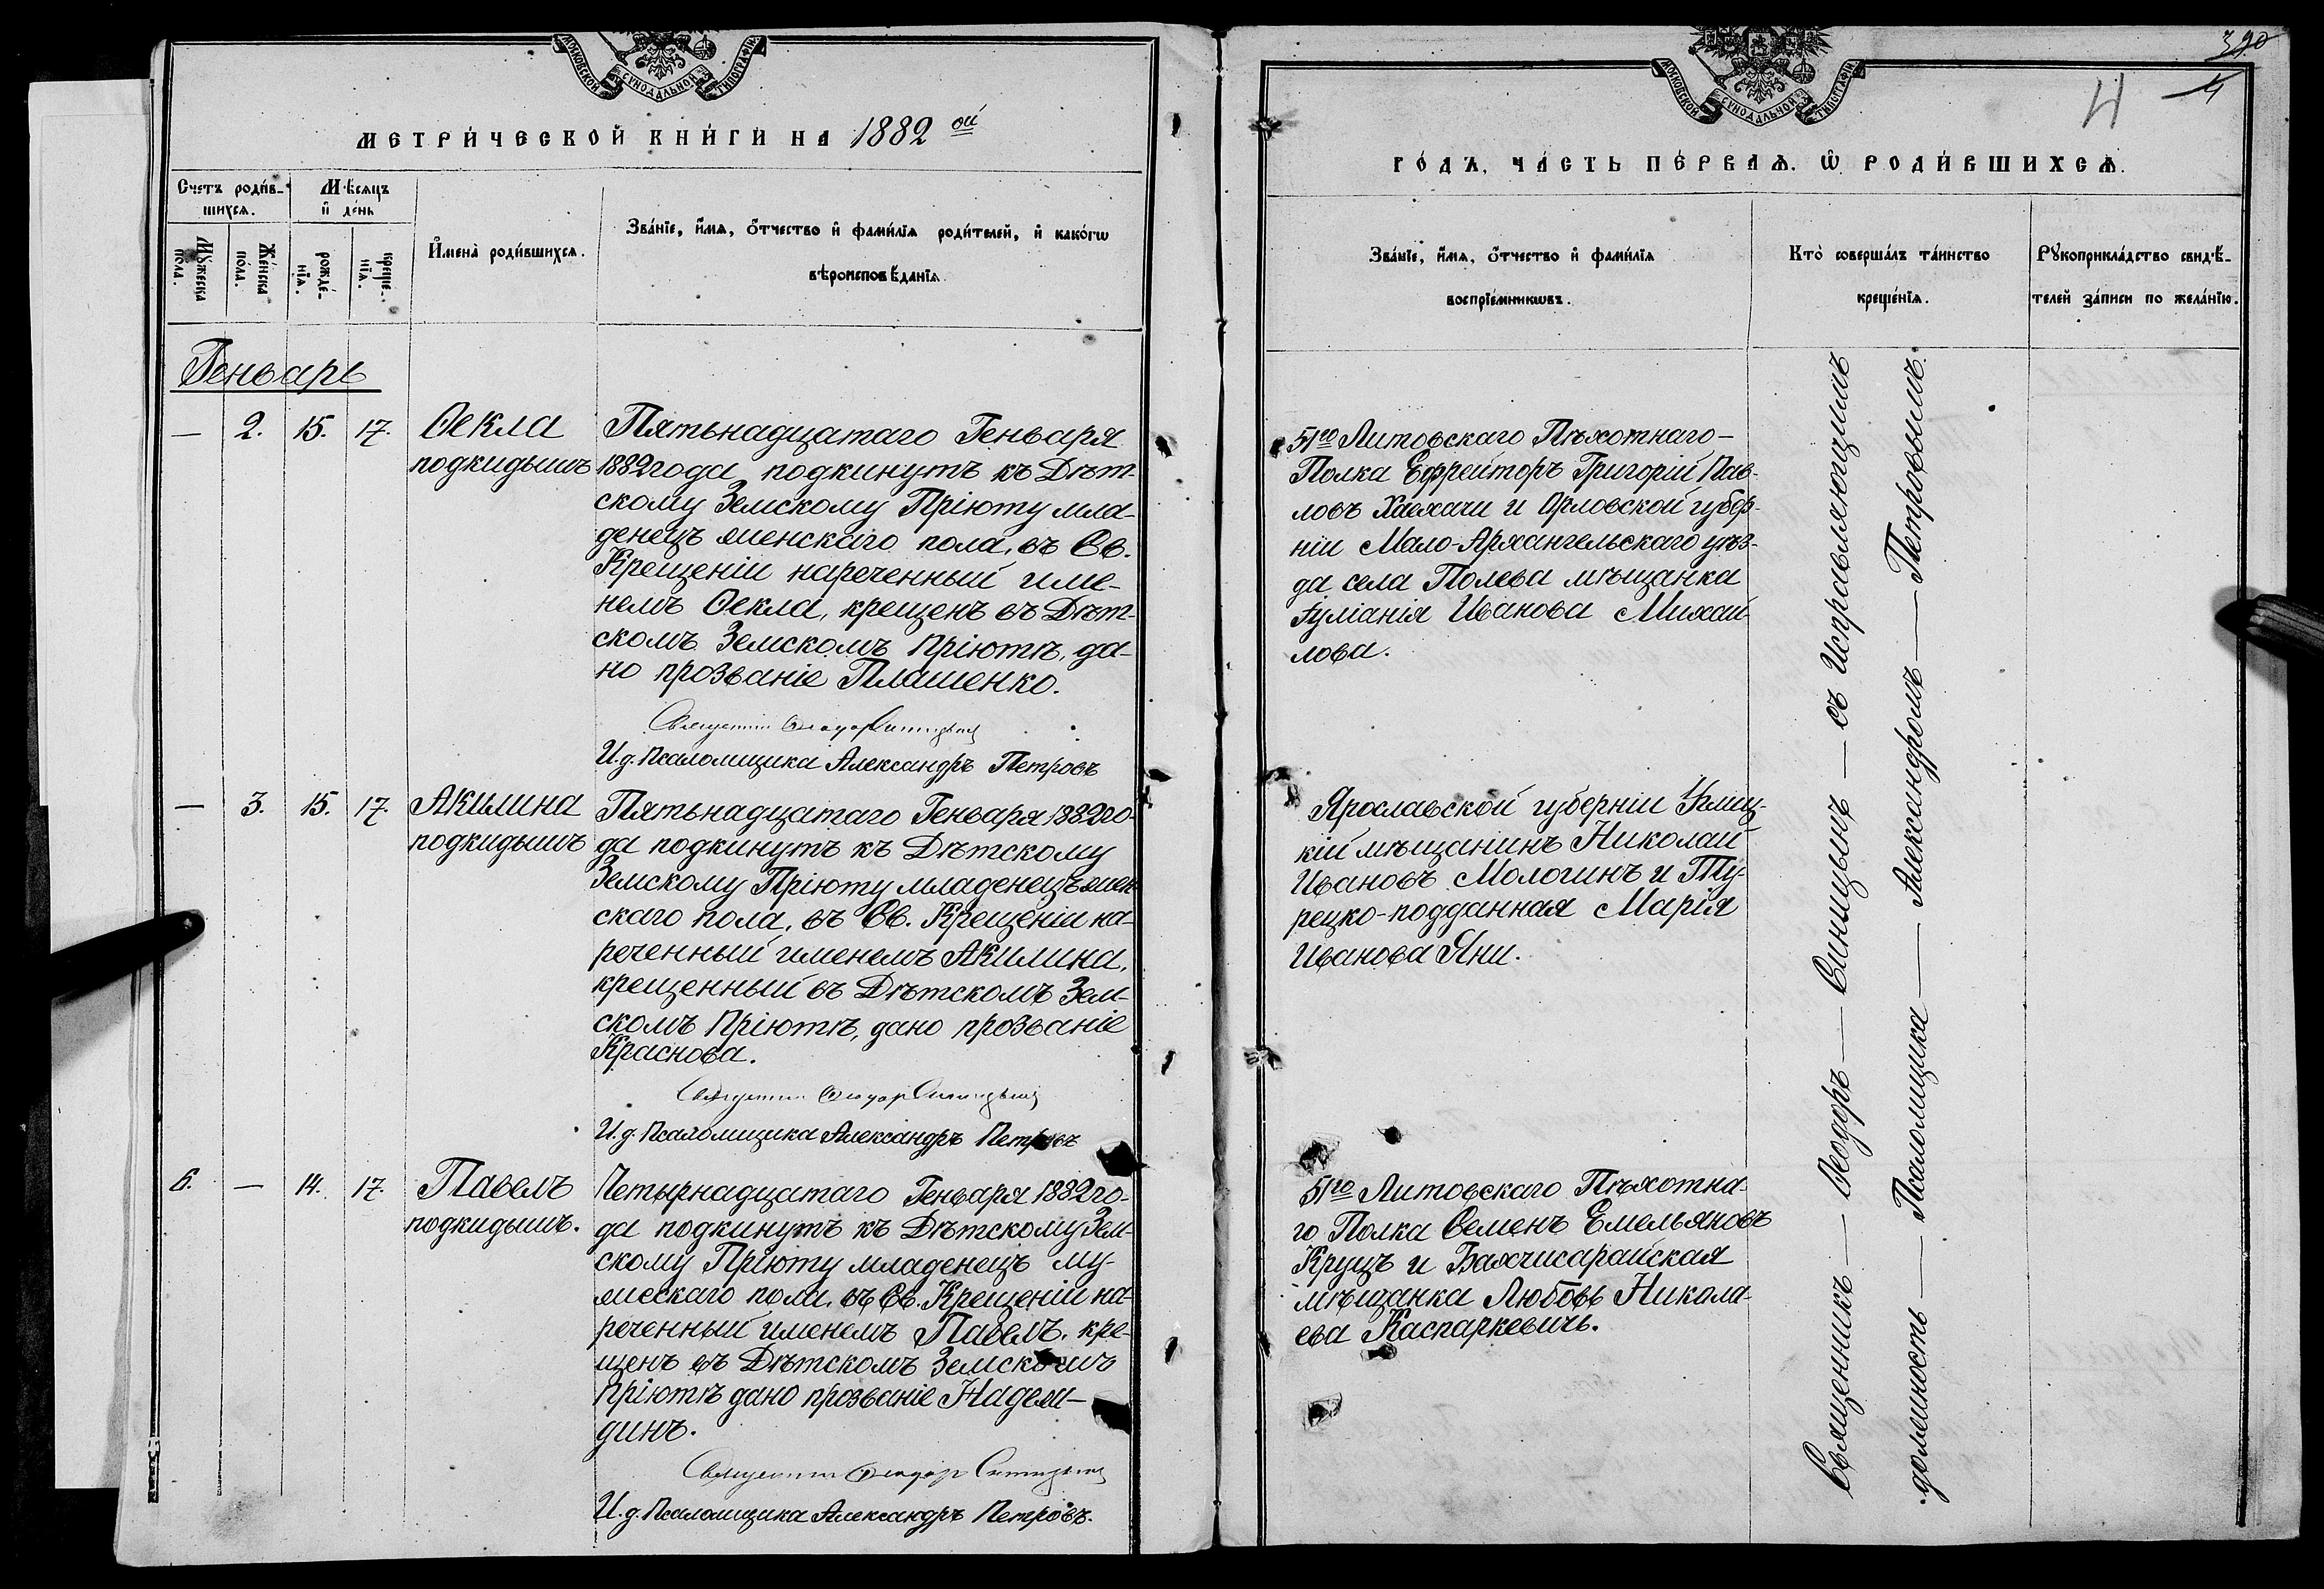 МОСКОВСКОЙ СУНОДАЛЬНОЙ ТИПОГРАФІИ
МЕТРИ́ЧЕСКОЙ КНИ́ГИ НА 1882 ой
Счетъ роди́в-
шихсѧ.
Мѣ́сяцъ
и҆ де́нь
Мꙋ́жеска
по́ла.
Же́нска
по́ла.
рожде́-
нїѧ.
креще́-
нїѧ.
И҆мена̀ роди́вшихсѧ.
Зва́нїе, и҆́мѧ, ѻ҆́тчество и҆ фами́лїѧ роди́телей, и҆ како́гѡ
вѣроисповѣ́данїѧ.
Генварь
— 2. 15. 17.
Ѳекла
подкидышъ
Пятьнадцатаго Генваря
1882 года подкинутъ къ Дѣт-
скому Земскому Пріюту мла-
денецъ женскаго пола, въ Св.
Крещеніи нареченный име-
немъ Ѳекла, крещенъ въ Дѣт-
скомъ Земскомъ Пріютѣ, да-
но прозваніе Плашенко.
Священникъ Ѳеодоръ Синицынъ
И.д. Псаломщика Александръ Петровъ
— 3. 15. 17.
Акилина
подкидышъ
Пятьнадцатаго Генваря 1882 го-
да подкинутъ къ Дѣтскому
Земскому Пріюту младенецъ жен-
скаго пола, въ Св. Крещеніи на-
реченный именемъ Акилина,
крещенный въ Дѣтскомъ Зем-
скомъ Пріютѣ, дано прозваніе
Краснова.
Священникъ Ѳеодоръ Синицынъ
И.д. Псаломщика Александръ Петровъ
6. — 14. 17.
Павелъ
подкидышъ.
Четырнадцатаго Генваря 1882 го-
да подкинутъ къ Дѣтскому Зем-
скому Пріюту младенецъ му-
жескаго пола, въ Св. Крещеніи на-
реченный именемъ Павелъ, кре-
щенъ въ Дѣтскомъ Земскомъ
Пріютѣ дано прозваніе Надеж-
динъ.
Священникъ Ѳеодоръ Синицынъ
И.д. Псаломщика Александръ Петровъ.
390
4
4
МОСКОВСКОЙ СУНОДАЛЬНОЙ ТИПОГРАФІИ
ГО́ДЪ, ЧА́СТЬ ПЕ́РВАѦ, Ѡ҆ РОДИ́ВШИХСѦ.
Зва́нїе, и҆́мѧ, ѻ҆́тчество и҆ фами́лїѧ
воспрїе́мникѡвъ.
Кто̀ соверша́лъ та́инство
креще́нїѧ.
Рꙋкоприкла́дство свидѣ́-
телей за́писи по жела́нїю.
51го Литовскаго Пѣхотнаго-
Полка Ефрейторъ Григорій Пав-
ловъ и Орловской губер-
ніи Мало-Архангельскаго уѣз-
да села Полева мѣщанка
Іуліанія Иванова Михай-
лова.
Ярославской губерніи Углиц-
кій мѣщанинъ Николай
Ивановъ Мологинъ и Ту-
рецко-подданная Марія
Иванова Яни.
51го Литовскаго Пѣхотна-
го Полка Семенъ Емельяновъ
Круцъ и Бахчисарайская
мѣщанка Любовь Никола-
ева Каспаркевичъ.
Священникъ — Ѳеодоръ — Синицынъ — съ Исправляющимъ
должность — Псаломщика — Александромъ — Петровымъ.